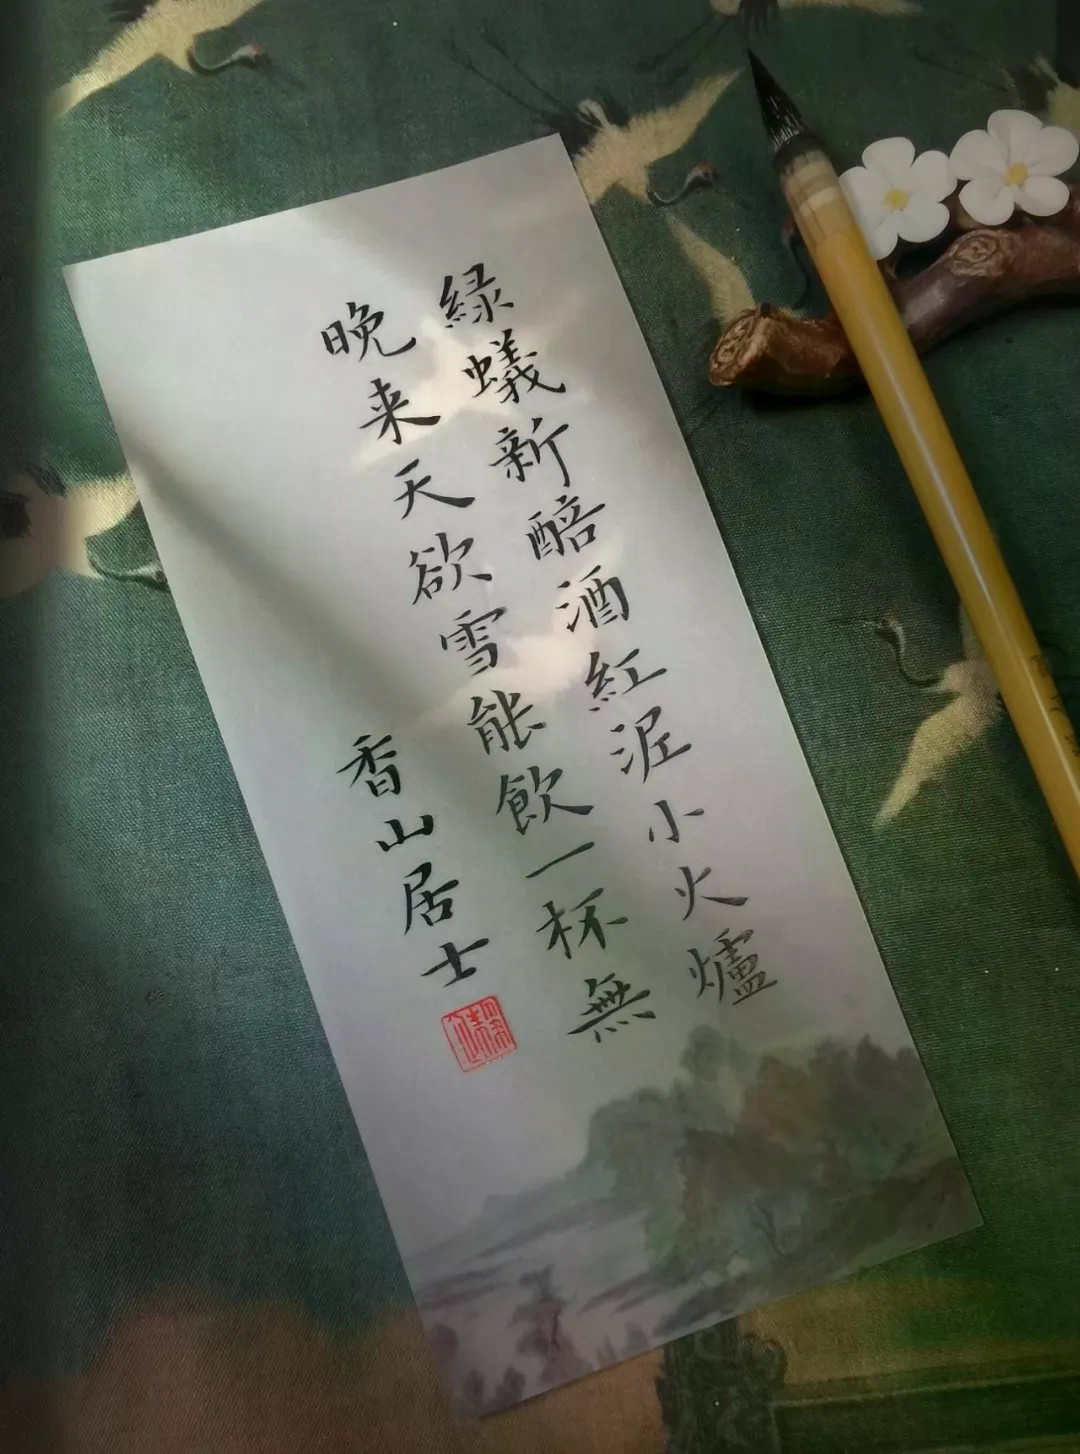 緑蟻新醅酒紅泥小火爐
晚来天欲雪能飲一杯無
香山居士